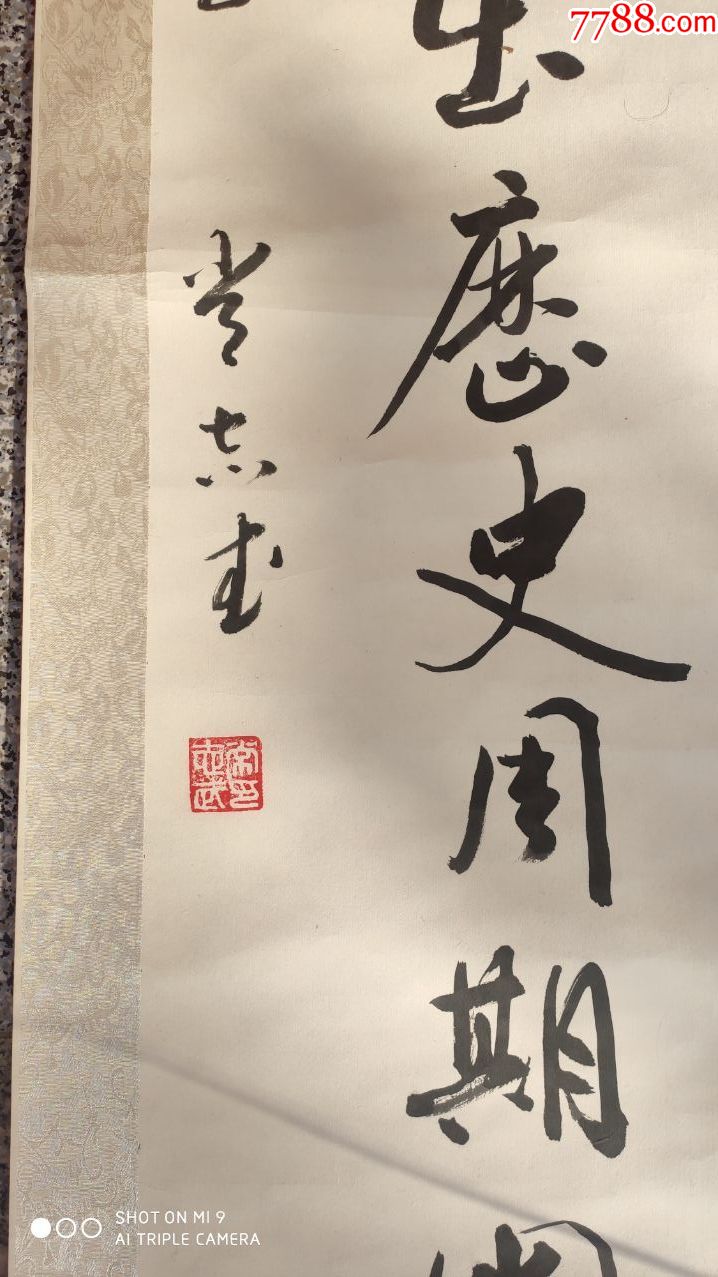 7788.com
出歷史周期
志武
SHOT ON MI 9
AI TRIPLE CAMERA